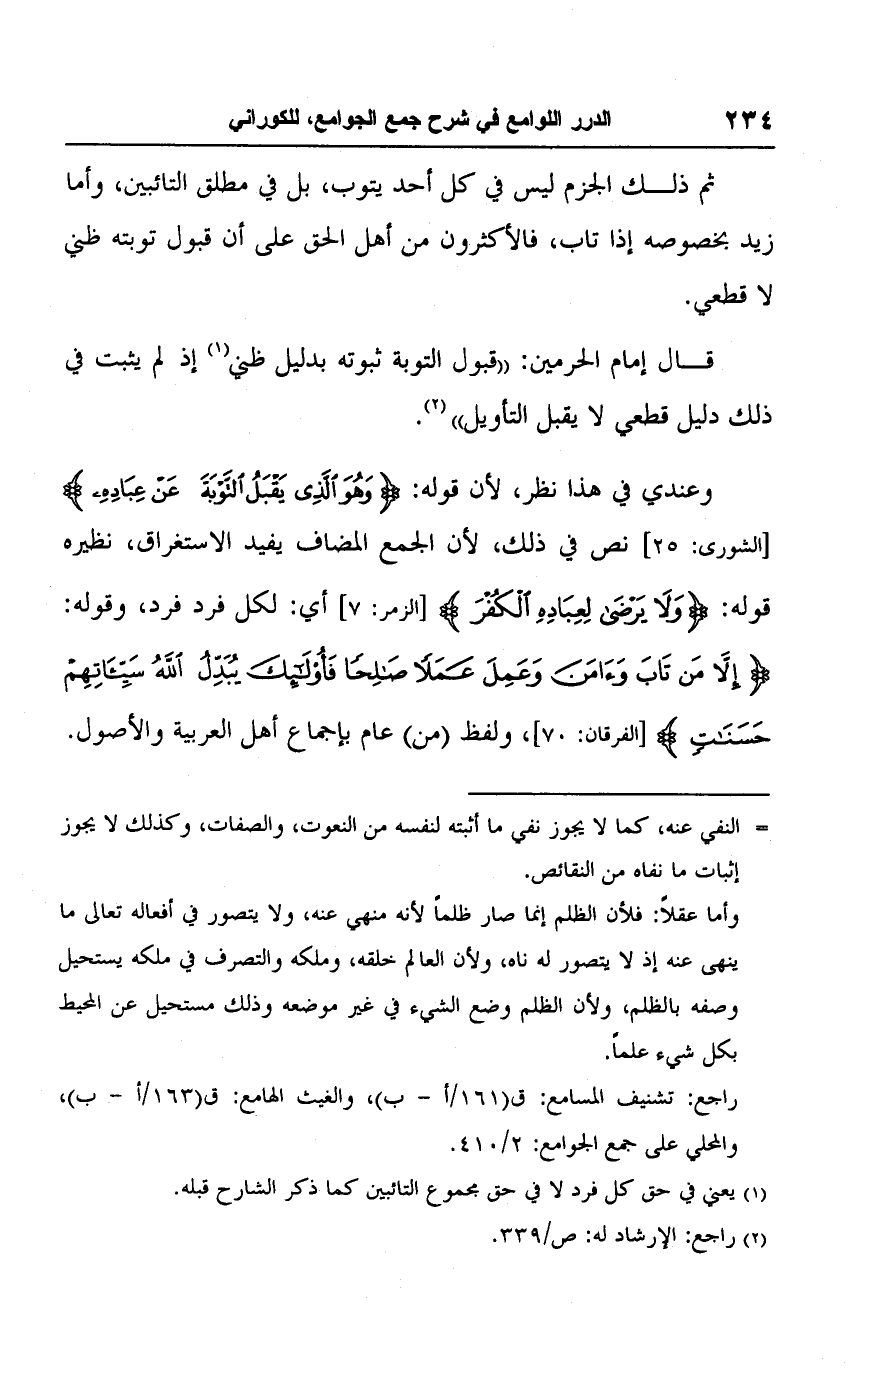 ٢٣٤ الدرر اللوامع في شرح جمع الجوامع، للكوراني
ثم ذلـــك الجزم ليس في كل أحد يتوب، بل في مطلق التائبين، وأما
زيد بخصوصه إذا تاب، فالأكثرون من أهل الحق على أن قبول توبته ظني
لا قطعي.
قـــال إمام الحرمين: ((قبول التوبة ثبوته بدليل ظني(١) إذ لم يثبت في
ذلك دليل قطعي لا يقبل التأويل))(٢).
وعندي في هذا نظر، لأن قوله: ﴿ وَهُوَ ٱلَّذِى يَقْبَلُ ٱلتَّوْبَةَ عَنْ عِبَادِهِۦ ﴾
[الشورى: ٢٥] نص في ذلك، لأن الجمع المضاف يفيد الاستغراق، نظيره
قوله: ﴿ وَلَا يَرْضَىٰ لِعِبَادِهِ ٱلْكُفْرَ ﴾ [الزمر: ٧] أي: لكل فرد فرد، وقوله:
﴿ إِلَّا مَن تَابَ وَءَامَنَ وَعَمِلَ عَمَلًا صَٰلِحًا فَأُوْلَٰٓئِكَ يُبَدِّلُ ٱللَّهُ سَيِّـَٔاتِهِمْ
حَسَنَٰتٍ ﴾ [الفرقان: ٧٠]، ولفظ (من) عام بإجماع أهل العربية والأصول.
= النفي عنه، كما لا يجوز نفي ما أثبته لنفسه من النعوت، والصفات، وكذلك لا يجوز
إثبات ما نفاه من النقائص.
وأما عقلاً: فلأن الظلم إنما صار ظلماً لأنه منهي عنه، ولا يتصور في أفعاله تعالى ما
ينهى عنه إذ لا يتصور له ناه، ولأن العالم خلقه، وملكه والتصرف في ملكه يستحيل
وصفه بالظلم، ولأن الظلم وضع الشيء في غير موضعه وذلك مستحيل عن المحيط
بكل شيء علماً.
راجع: تشنيف المسامع: ق(١٦١/أ - ب)، والغيث الهامع: ق(١٦٣/أ - ب)،
والمحلي على جمع الجوامع: ٤١٠/٢.
(١) يعني في حق كل فرد لا في حق مجموع التائبين كما ذكر الشارح قبله.
(٢) راجع: الإرشاد له: ص/٣٣٩.